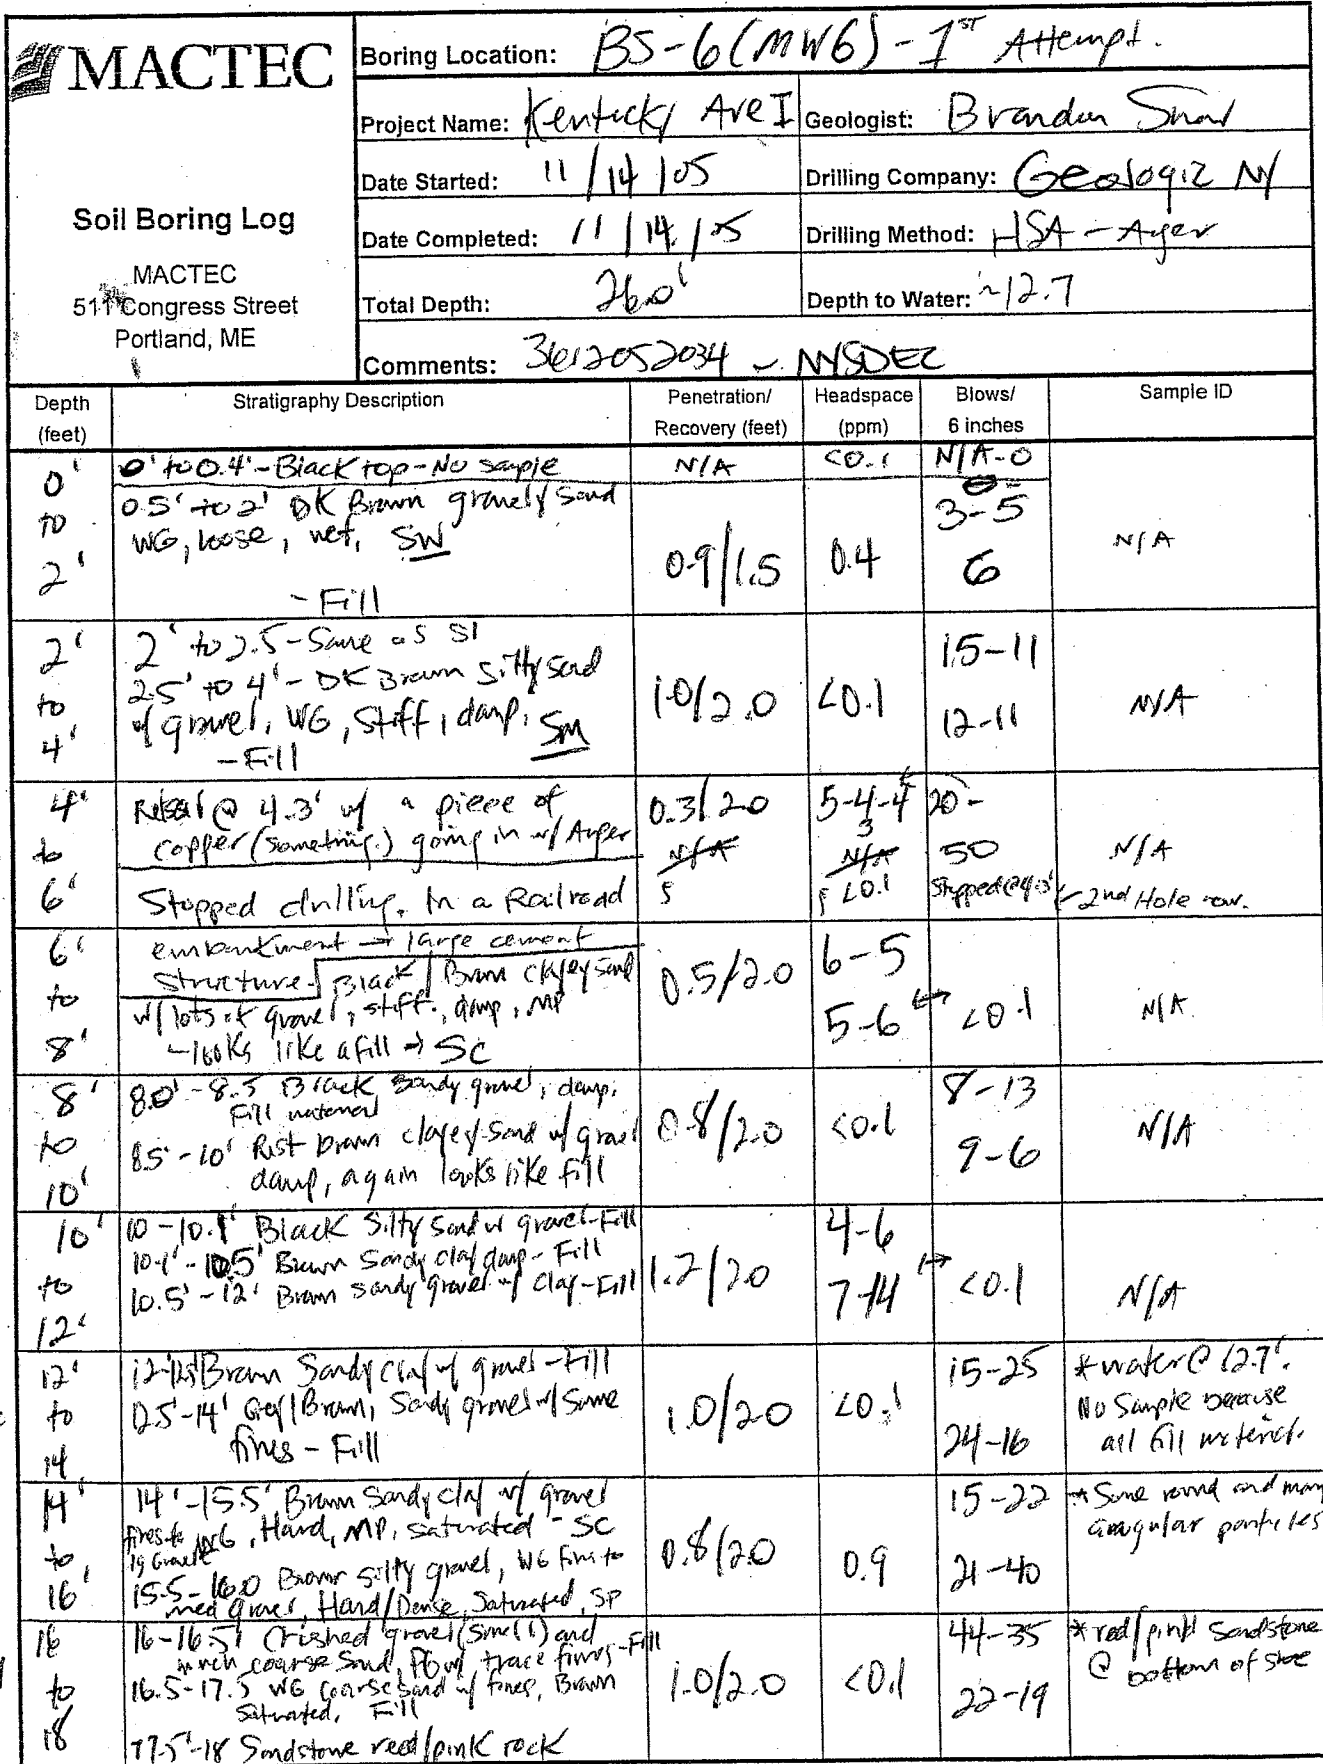 MACTEC
Soil Boring Log
MACTEC
511 Congress Street
Portland, ME
Boring Location: BS-6 (MW6) - 1ST Attempt.
Project Name: Kentucky Ave I
Geologist: Brandon Shaw
Date Started: 11/14/05
Drilling Company: Geologic NY
Date Completed: 11/14/05
Drilling Method: HSA - Auger
Total Depth: 26.0'
Depth to Water: ~12.7
Comments: 3612052034 - NYSDEC
Depth (feet) Stratigraphy Description Penetration/ Recovery (feet) Headspace (ppm) Blows/ 6 inches Sample ID
0' to 2'
0' to 0.4' - Black top - No sample N/A <0.1 N/A-0
0.5' to 2' DK Brown gravely sand
WG, loose, wet, SW
- Fill
0.9/1.5 0.4 3-5 6 N/A
2' to 4'
2' to 2.5 - Same as S1
2.5' to 4' - DK Brown Silty Sand
w/ gravel, WG, stiff, damp, SM
- Fill
1.0/2.0 <0.1 15-11 12-11 N/A
4' to 6'
Refusal @ 4.3' w/ a piece of
copper (something.) going in w/ Auger
Stopped drilling. In a Railroad
0.3/2.0 N/A 5 5-4-4 3 N/A <0.1 20- 50 Stopped @ 4.3' N/A
2nd Hole now.
6' to 8'
embankment → large cement
structure. Black/Brown clayey sand
w/ lots of gravel, stiff, damp, MP
- looks like a fill → SC
0.5/2.0 6-5 5-6 ↔ <0.1 N/A
8' to 10'
8.0' - 8.5 Black Sandy gravel, damp.
Fill material
8.5' - 10' Rust brown clayey sand w/ gravel
damp, again looks like fill
0.8/2.0 <0.1 8-13 9-6 N/A
10' to 12'
10 - 10.1' Black Silty Sand w/ gravel - Fill
10.1' - 10.5' Brown Sandy clay damp - Fill
10.5' - 12' Brown sandy gravel w/ clay - Fill
1.2/2.0 4-6 7-14 ↔ <0.1 N/A
12' to 14
12-12.5' Brown Sandy clay w/ gravel - Fill
12.5' - 14' Grey/Brown, Sandy gravel w/ some
fines - Fill
1.0/2.0 <0.1 15-25 24-16
* water @ 12.7'.
No Sample because
all fill material.
14' to 16'
14' - 15.5' Brown Sandy clay w/ gravel
fines to lg Gravel WG, Hard, MP, saturated - SC
15.5 - 16.0 Brown silty gravel, WG fines to
med gravel, Hard/Dense, Saturated, SP
0.8/2.0 0.9 15-22 21-40
* Some round and many
angular particles
16 to 18
16 - 16.5' Crushed gravel (small) and
much coarse sand, PG w/ trace fines - Fill
16.5 - 17.5 WG coarse sand w/ fines, Brown
Saturated, Fill
17.5' - 18 Sandstone red/pink rock
1.0/2.0 <0.1 44-35 22-19
* red/pink Sandstone
@ bottom of shoe